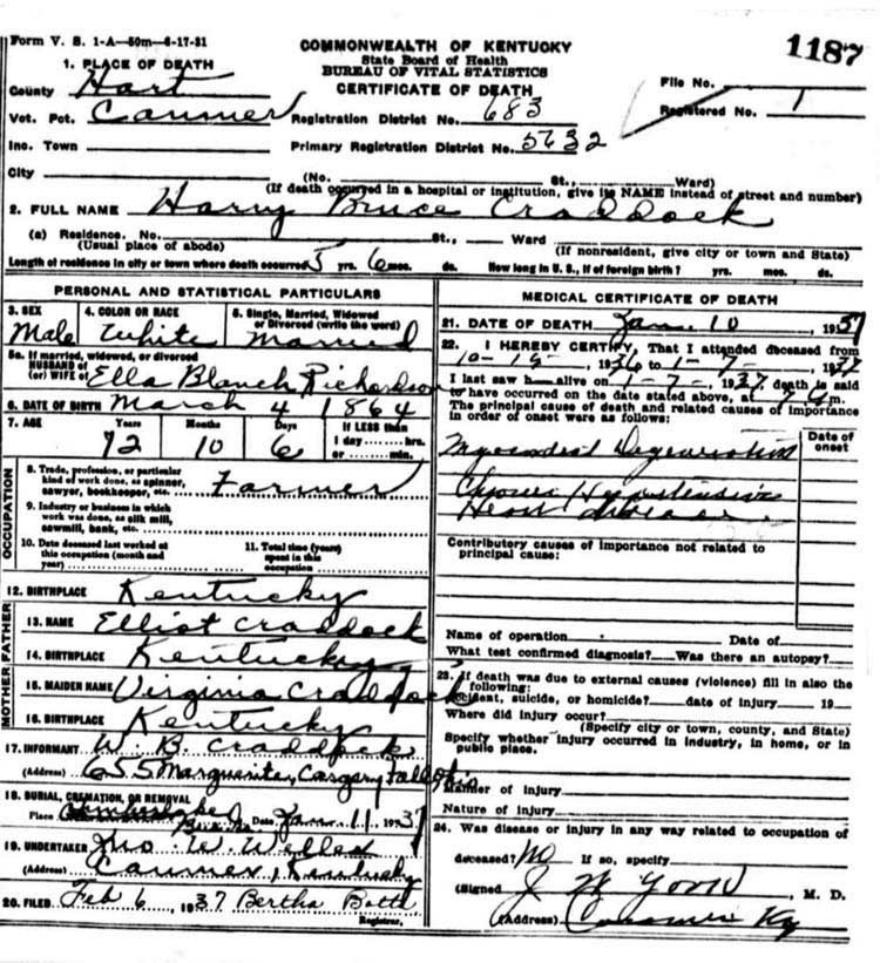 Form V. S. 1-A—50m—6-17-31
COMMONWEALTH OF KENTUCKY
State Board of Health
BUREAU OF VITAL STATISTICS
CERTIFICATE OF DEATH
1187
1. PLACE OF DEATH
County Hart
File No.
Vot. Pct. Canmer Registration District No. 683
Registered No. 1
Inc. Town Primary Registration District No. 5632
City (No. St., Ward)
(If death occurred in a hospital or institution, give its NAME instead of street and number)
2. FULL NAME Harry Bruce Craddock
(a) Residence. No. St., Ward
(Usual place of abode) (If nonresident, give city or town and State)
Length of residence in city or town where death occurred 5 yrs. 6 mos. ds. How long in U. S., if of foreign birth? yrs. mos. ds.
PERSONAL AND STATISTICAL PARTICULARS
3. SEX 4. COLOR OR RACE 5. Single, Married, Widowed
or Divorced (write the word)
Male White Married
5a. If married, widowed, or divorced
HUSBAND of
(or) WIFE of Ella Blanch Richardson
6. DATE OF BIRTH March 4 1864
7. AGE Years Months Days If LESS than
1 day hrs.
72 10 6 or min.
OCCUPATION
8. Trade, profession, or particular
kind of work done, as spinner,
sawyer, bookkeeper, etc. Farmer
9. Industry or business in which
work was done, as silk mill,
sawmill, bank, etc.
10. Date deceased last worked at
this occupation (month and
year)
11. Total time (years)
spent in this
occupation
12. BIRTHPLACE Kentucky
FATHER
13. NAME Elliot Craddock
14. BIRTHPLACE Kentucky
MOTHER
15. MAIDEN NAME Virginia Craddock
16. BIRTHPLACE Kentucky
17. INFORMANT W. B. Craddock
(Address) 655 Marguerite, Falls Ohio
18. BURIAL, CREMATION, OR REMOVAL
Place Date Jan. 11 1937
19. UNDERTAKER Jno. W.
(Address) Canmer, Kentucky
20. FILED Feb 6, 1937 Bertha Botts
Registrar.
MEDICAL CERTIFICATE OF DEATH
21. DATE OF DEATH Jan. 10, 1937
22. I HEREBY CERTIFY, That I attended deceased from
10-15-, 1936 to 1-7-, 1937
I last saw h alive on 1-7-, 1937 death is said
to have occurred on the date stated above, at m.
The principal cause of death and related causes of importance
in order of onset were as follows:
Date of
onset
Myocardial Degeneration
Chronic Hypertensive
Heart disease.
Contributory causes of importance not related to
principal cause:
Name of operation Date of
What test confirmed diagnosis? Was there an autopsy?
23. If death was due to external causes (violence) fill in also the
following:
Accident, suicide, or homicide? date of injury 19
Where did injury occur?
(Specify city or town, county, and State)
Specify whether injury occurred in industry, in home, or in
public place.
Manner of injury
Nature of injury
24. Was disease or injury in any way related to occupation of
deceased? No If so, specify
(Signed J W, M. D.
(Address) Canmer Ky